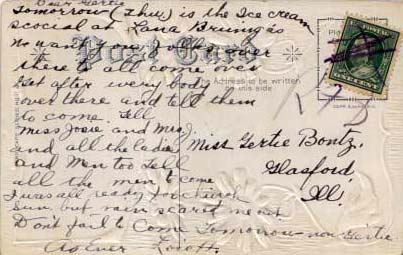 Dear Gertie
Tomorrow (Thur.) is the Ice cream
social at Lana Bruning's
so want you folks over
there to all come now
Get after every body
over there and tell them
to come. Tell
Miss Josie and Miss
and all the ladies
and Men too Tell
all the men to come
I was all ready for church
Sun but rain scarst me out
Don't fail to Come Tomorrow now Gertie
As Ever
Post Card
The Address to be written
on this side
ONE CENT
Miss Gertie Bontz.
Glasford,
Ill.